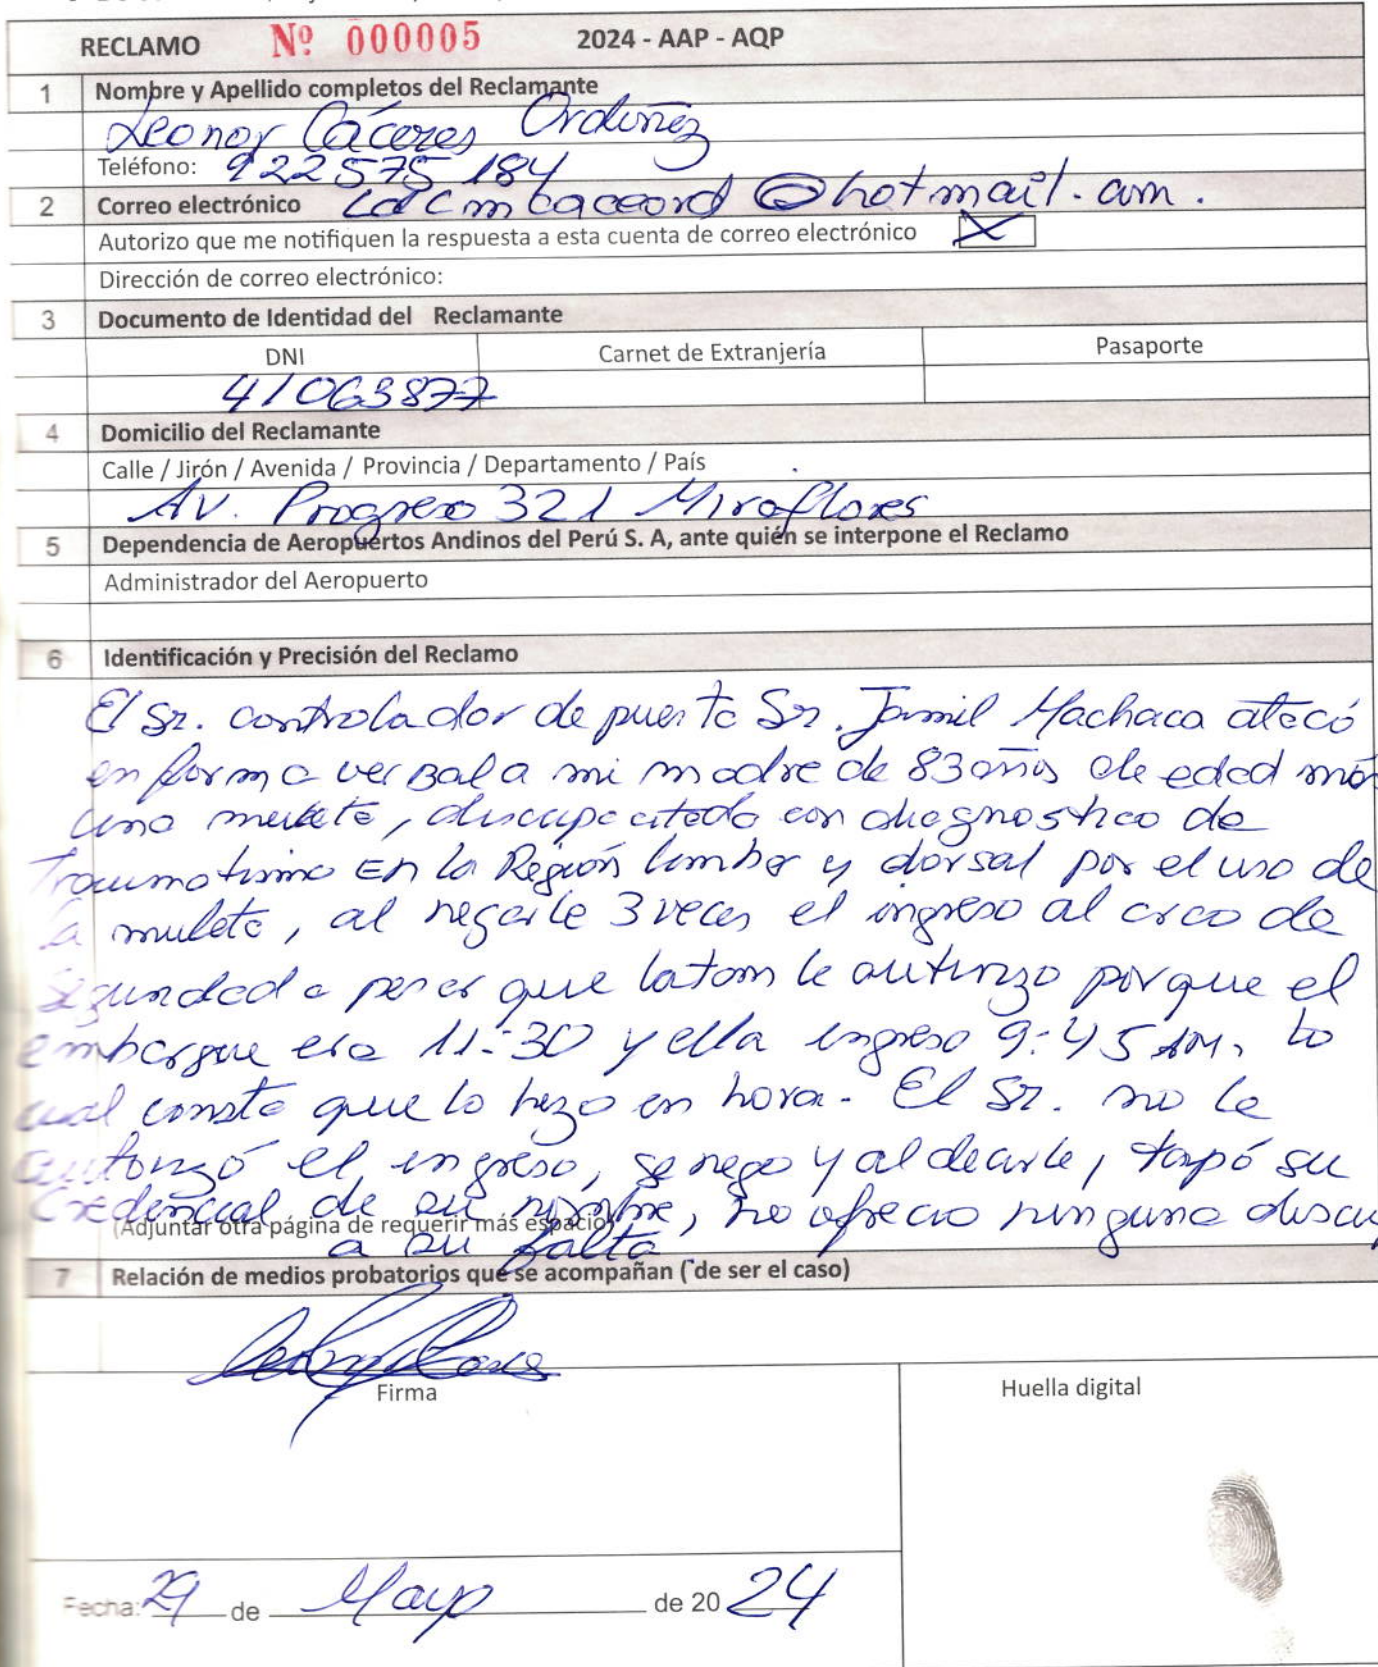 RECLAMO Nº 000005 2024 - AAP - AQP
1 Nombre y Apellido completos del Reclamante
Leonor Cáceres Ordoñez
Teléfono: 922575 184
2 Correo electrónico @hotmail.com.
Autorizo que me notifiquen la respuesta a esta cuenta de correo electrónico X
Dirección de correo electrónico:
3 Documento de Identidad del Reclamante
DNI Carnet de Extranjería Pasaporte
41063877
4 Domicilio del Reclamante
Calle / Jirón / Avenida / Provincia / Departamento / País
Av. Progreso 321 Miraflores
5 Dependencia de Aeropuertos Andinos del Perú S. A, ante quién se interpone el Reclamo
Administrador del Aeropuerto
6 Identificación y Precisión del Reclamo
El Sr. controlador de puerta Sr. Jamil Machaca atacó
en forma verbal a mi madre de 83 años de edad más
una muleta, discapacitada con diagnostico de
Traumatismo En la Región lumbar y dorsal por el uso de
la muleta, al negarle 3 veces el ingreso al arco de
seguridad a pesar que latam le autorizo porque el
embarque era 11:30 y ella ingreso 9:45 AM, lo
cual consta que lo hizo en hora. El Sr. no le
autorizó el ingreso, se nego y al decirle, tapó su
Credencial de su nombre, no ofrecio ninguna discu
(Adjuntar otra página de requerir más espacio)
a su falta
7 Relación de medios probatorios que se acompañan (de ser el caso)
Firma Huella digital
Fecha: 29 de Mayo de 2024